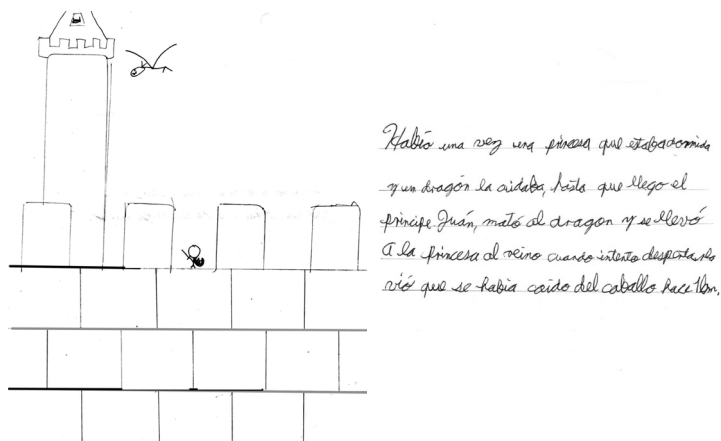 Había una vez una princesa que estaba dormida
y un dragón la cuidaba, hasta que llego el
príncipe Juán, mató al dragon y se llevó
a la princesa al reino cuando intento despertarla
vió que se habia caido del caballo hace 1km.